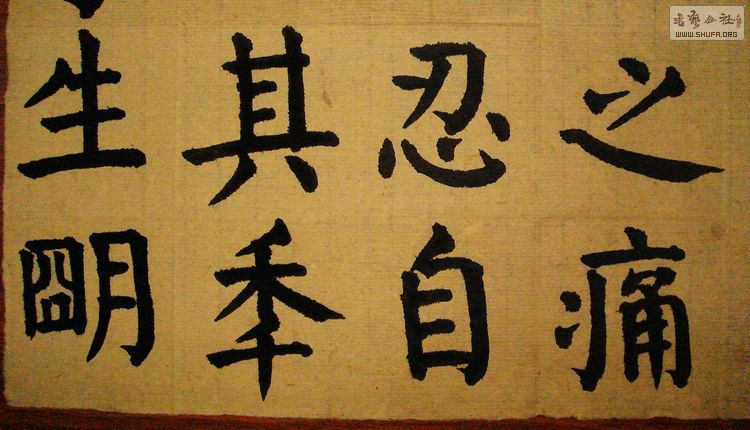 之痛
忍自
其秊
生朙
書藝公社
WWW.SHUFA.ORG